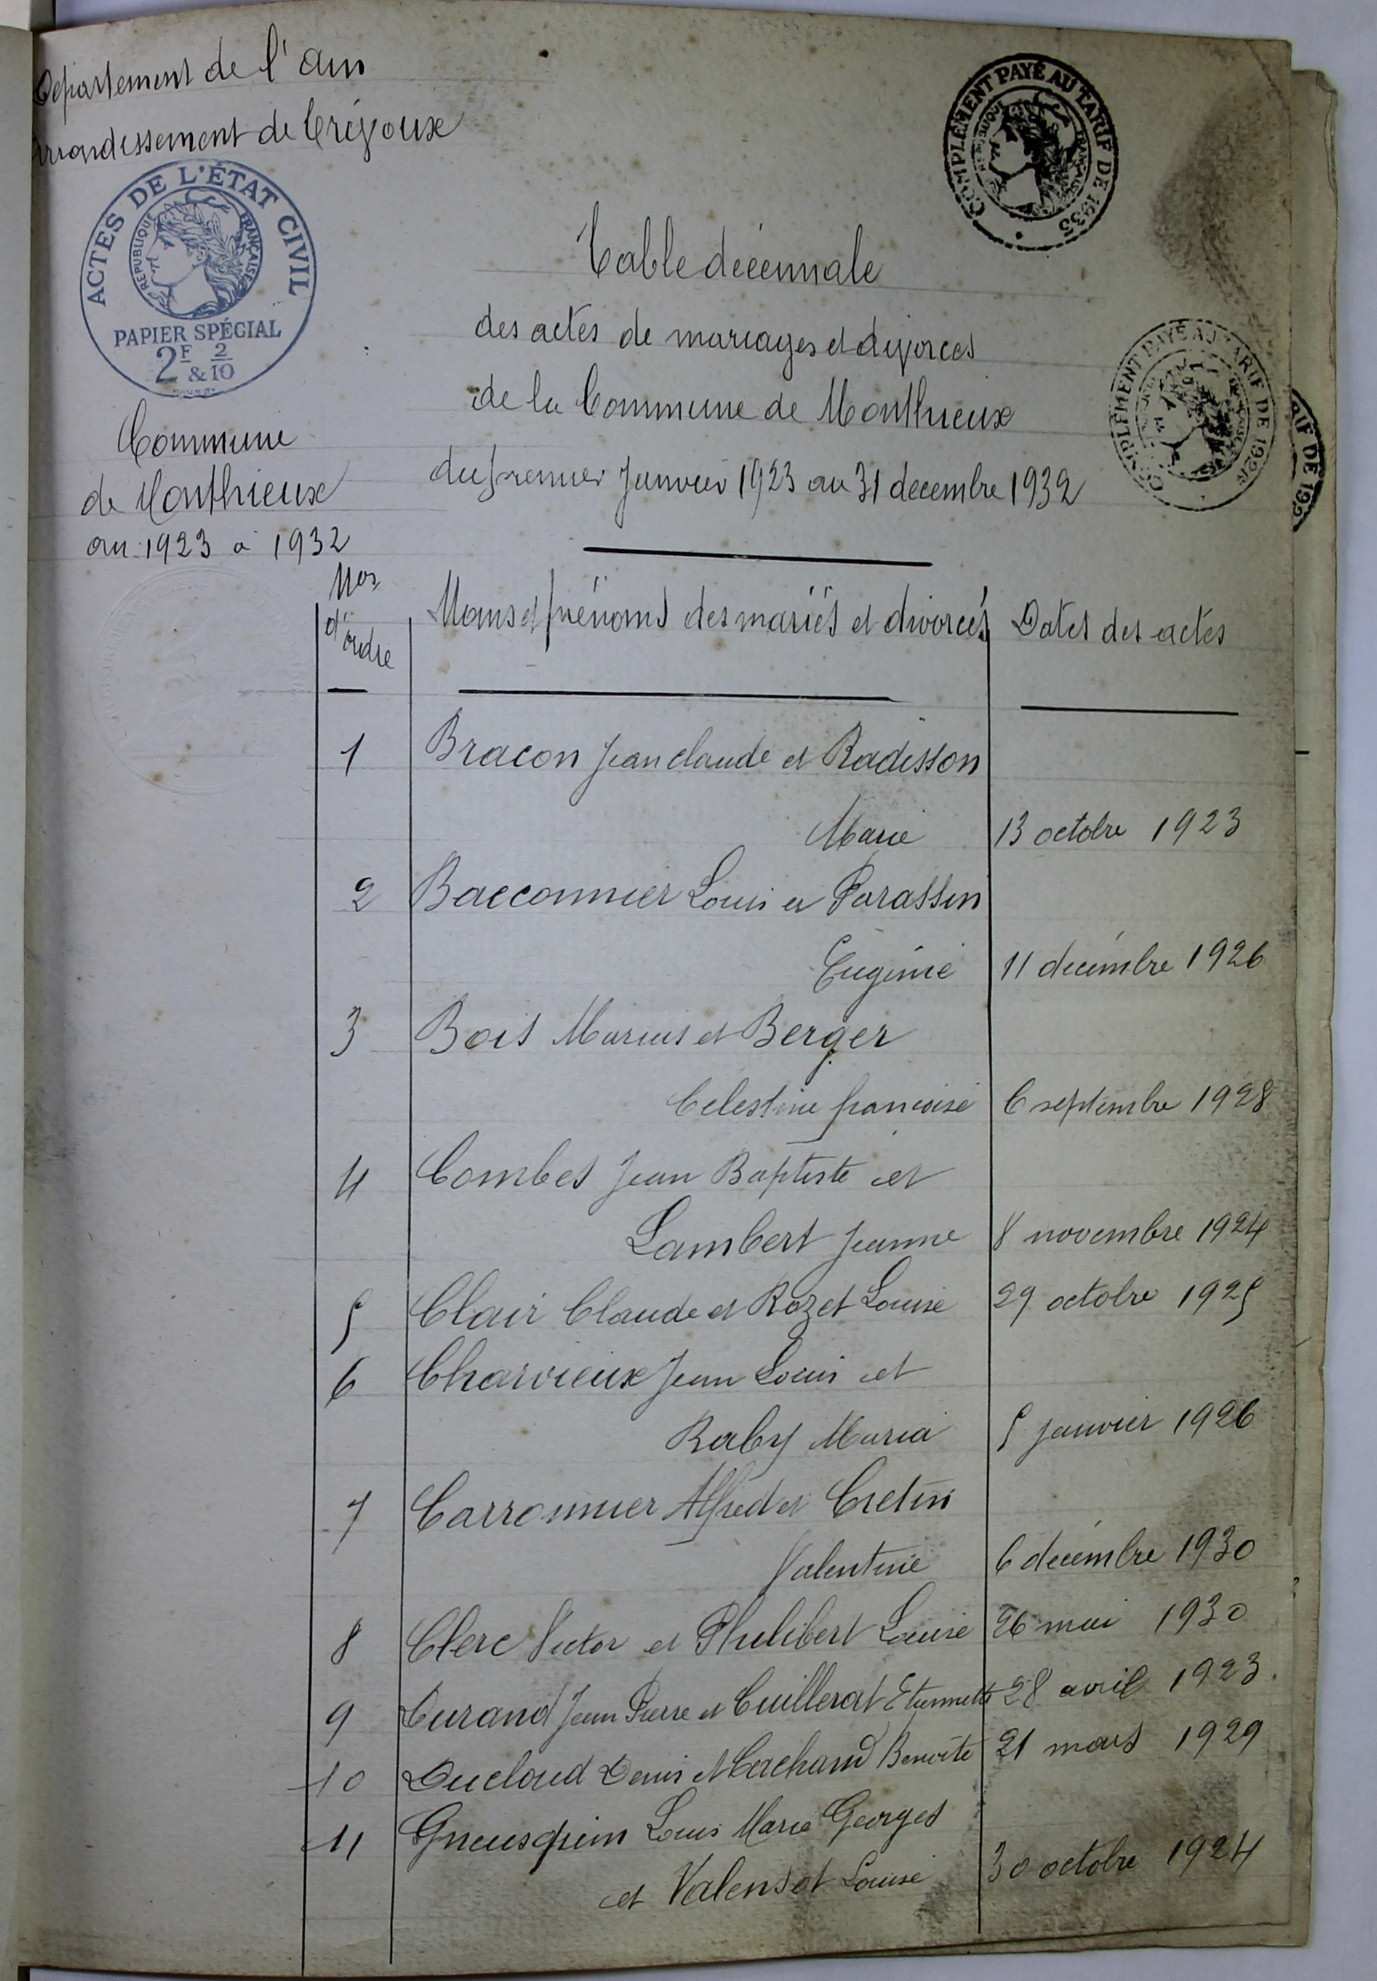 Département de l'ain
arrondissement de Trévoux
ACTES DE L'ÉTAT CIVIL
RÉPUBLIQUE FRANÇAISE
PAPIER SPÉCIAL
2F & 2/10
COMPLÉMENT PAYÉ AU TARIF DE 1933
RÉPUBLIQUE FRANÇAISE
COMPLÉMENT PAYÉ AU TARIF DE 192
RIF DE 192
Commune
de Monthieux
an 1923 à 1932
Table décennale
des actes de mariages et divorces
de la Commune de Monthieux
du premier Janvier 1923 au 31 decembre 1932
Nos d'ordre
Noms et prénoms des mariés et divorcés
Dates des actes
1 Bracon Jean claude et Radisson
Marie 13 octobre 1923
2 Bacconnier Louis et Parassin
Eugénie 11 décembre 1926
3 Bois Marius et Berger
Celestine françoise 6 septembre 1928
4 Combes Jean Baptiste et
Lambert Jeanne 8 novembre 1924
5 Clair Claude et Rozet Louise 29 octobre 1925
6 Charvieux Jean Louis et
Raby Maria 5 janvier 1926
7 Carronnier Alfred et Cretin
Valentine 6 décembre 1930
8 Clerc Victor et Philibert Louise 26 mai 1930
9 Durand Jean Pierre et Cuillerat Etiennette 28 avril 1923
10 Ducloud Denis et Merchand Benoite 21 mars 1929
11 Gneusquin Louis Marie Georges
et Valensot Louise 30 octobre 1924